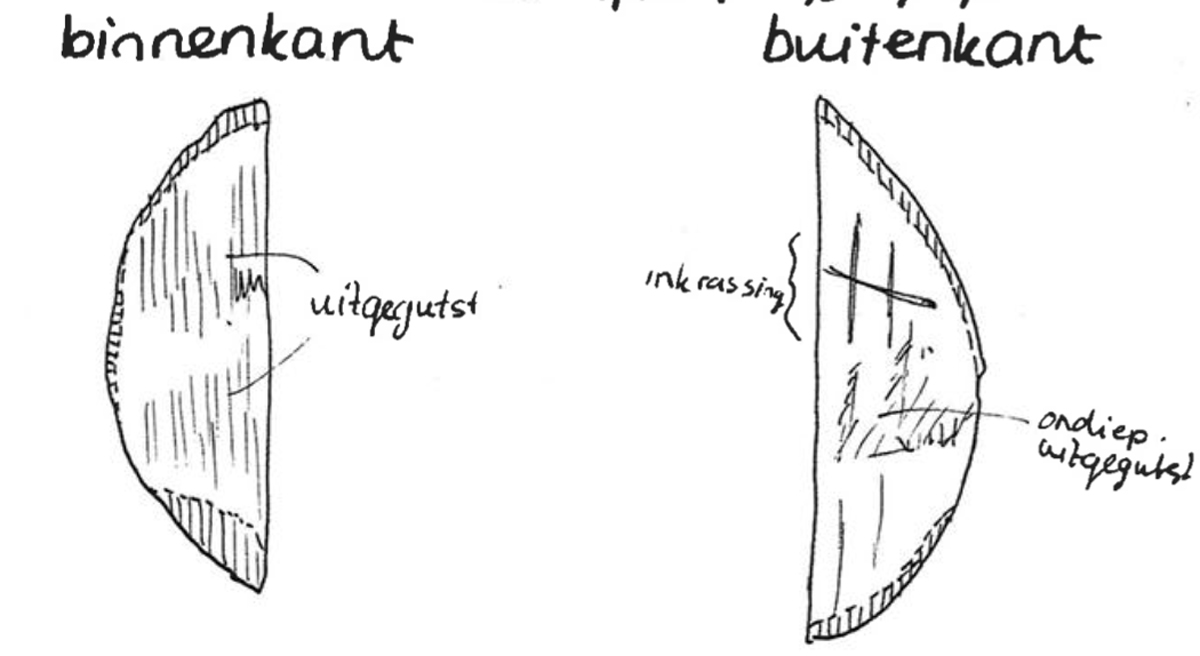 binnenkant
buitenkant
inkrassing
uitgegutst
ondiep.
uitgegutst